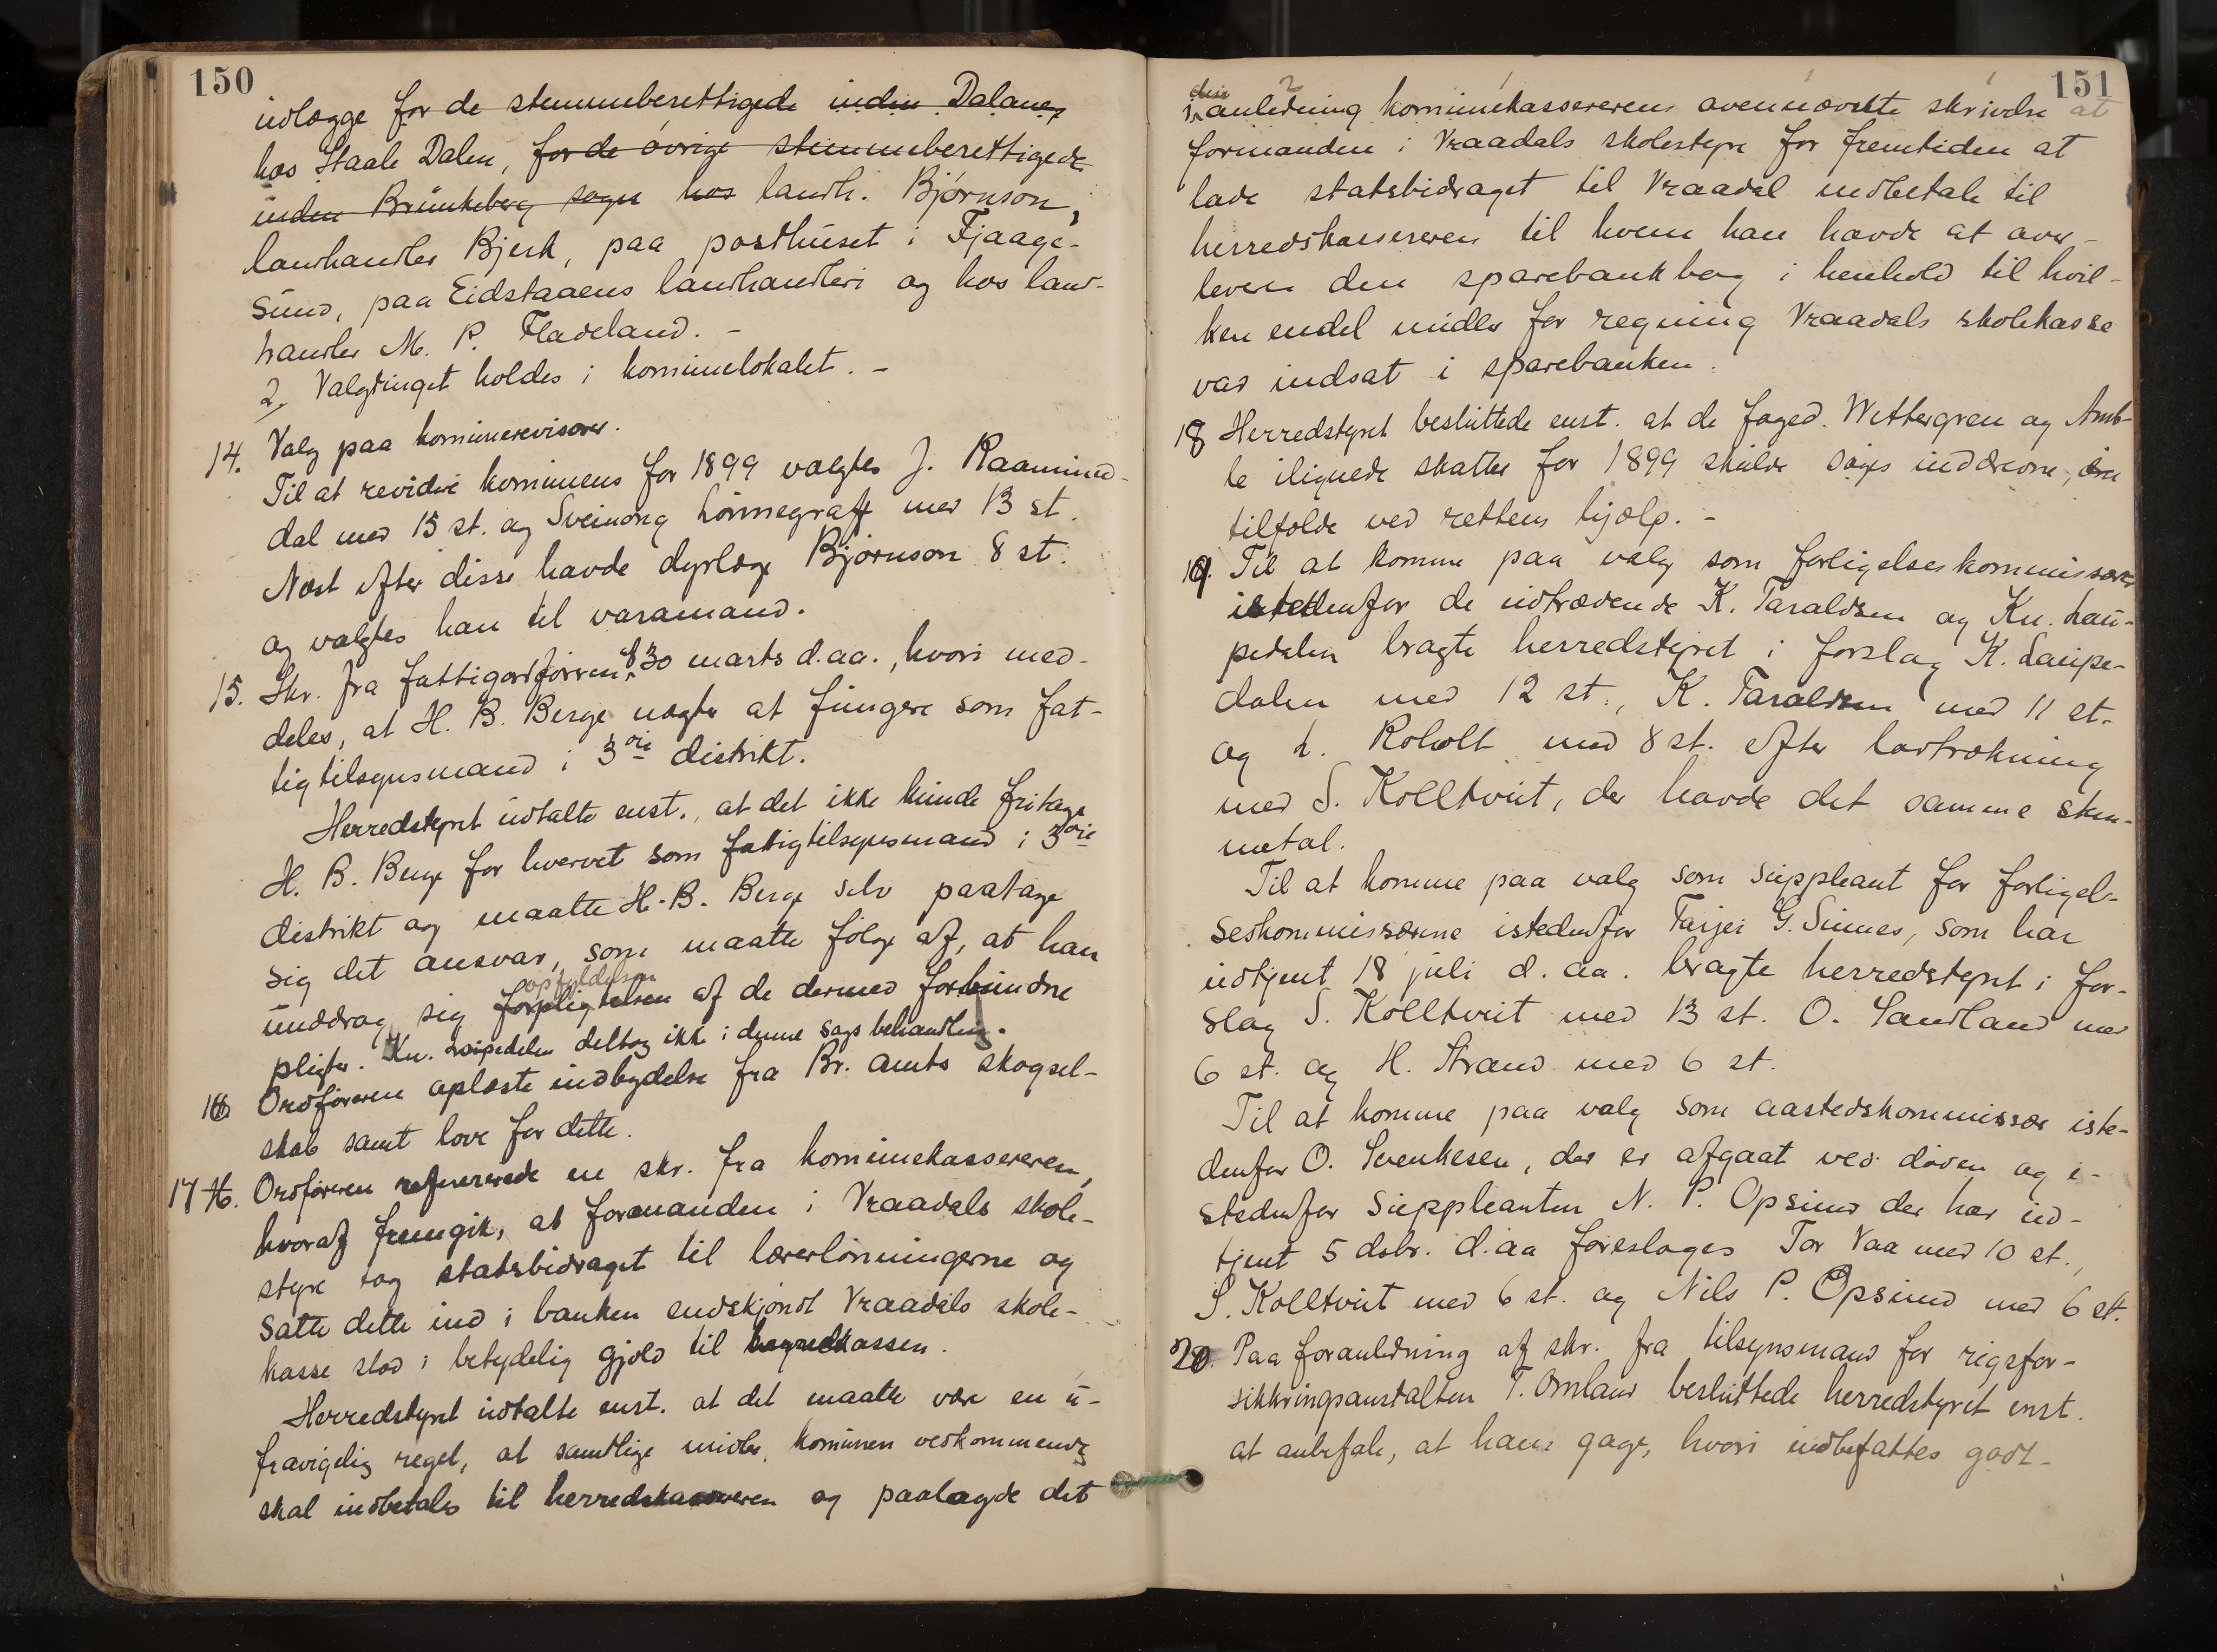 150
udlægge for de stemmeberettigede inden Dalane,
hos Staale Dalen, for de øvrige stemmeberettigede
inden Brunkeberg sogn hos landh. Bjørnson,
landhandler Bjerk, paa posthuset i Fjaage-
sund, paa Eidstaaens landhandleri og hos land-
handler M. P. Fladeland. -
2, Valgtinget holdes i kommunelokalet. -
14. Valg paa kommunerevisorer.
Til at revidere kommunens for 1899 valgtes J. Raamund-
dal med 15 st. og Sveinung Lønnegraff med 13 st.
Næst efter disse havde dyrlæge Bjørnson 8 st.
og valgtes han til varamand.
15. Skr. fra fattigordføreren af 30 marts d.aa., hvori med-
deles, at H. B. Berge nægter at fungere som fat-
tigtilsynsmand i 3die distrikt.
Herredstyret udtalte enst., at det ikke kunde fritage
H. B. Berge for hvervet som fattigtilsynsmand i 3die
distrikt og maatte H. B. Berge selv paatage
sig det ansvar, som maatte følge af, at han
opfyldelsen
unddrog sig forpligtelsen af de dermed forbundne
pligter. Kn. Laupedalen deltog ikke i denne sags behandlen.
16 Ordføreren oplæste indbydelse fra Br. amts skogsel-
skab samt love for dette.
17 16. Ordføreren refererede en skr. fra kommunekassereren,
hvoraf fremgik, at formanden i Vraadals skole-
styre tog statsbidraget til lærerlønningerne og
satte dette ind i banken endskjøndt Vraadals skole-
kasse stod i betydelig gjæld til herredskassen.
Herredstyret udtalte enst. at det maatte være en u-
fravigelig regel, at samtlige midler, kommunen vedkommende
skal indbetales til herredskassereren og paalagde det
151
den
i anledning kommunekassererens ovennævnte skrivelse at
formanden i Vraadals skolestyre for fremtiden at
lade statsbidraget til Vraadal indbetale til
herredskassereren til hvem han havde at over-
levere den sparebankbog i henhold til hvil-
ken endel midler for regning Vraadals skolekasse
var indsat i sparebanken.
18 Herredstyret besluttede enst. at de foged. Wettergren og Amb-
le ilignede skatter for 1899 skulde søges inddrevne, om
tilfølde ved rettens hjælp. -
19. Til at komme paa valg som forligelseskommissær
istedenfor de udtrædende K. Taraldsen og Kn. Lau-
pedalen bragte herredstyret i forslag K. Laupe-
dalen med 12 st., K. Taraldsen med 11 st.
og L. Roholt med 8 st. efter lodtrækning
med S. Kolltveit, der havde det samme stem-
metal.
Til at komme paa valg som suppleant for forligel-
seskommissærene istedenfor Tarjei G. Sinnes, som har
udtjent 18 juli d. aa. bragte herredstyret i for-
slag S. Kolltveit med 13 st. O. Sandland med
6 st. og H. Strand med 6 st.
Til at komme paa valg som aastedskommissær iste-
denfor O. Svenkesen, der er afgaat ved døden og i-
stedenfor suppleanten N. P. Opsund der har ud-
tjent 5 dsbr. d.aa foreslages Tor Vaa med 10 st.,
S. Kolltveit med 6 st. og Nils P. Opsund med 6 st.
20. Paa foranledning af skr. fra tilsynsmand for rigsfor-
sikkringsanstalten T. Omland besluttede herredstyret enst.
at anbefale, at hans gage, hvori indbefattes godt-